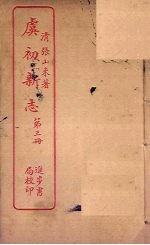 清張山來著
虞初新志
第三冊
進步書
局校印